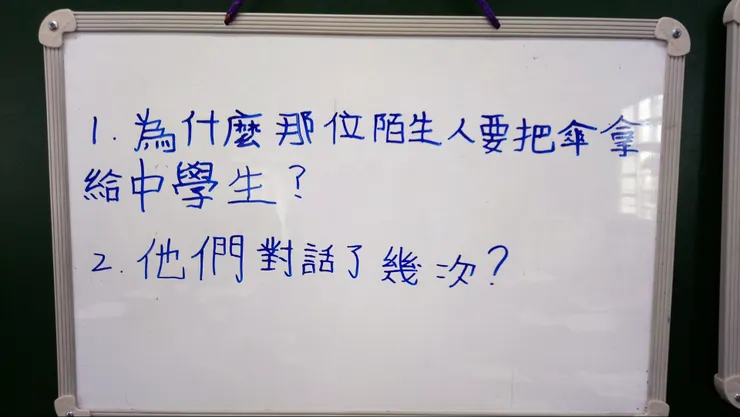 1. 為什麼那位陌生人要把傘拿
給中學生?
2. 他們對話了幾次?